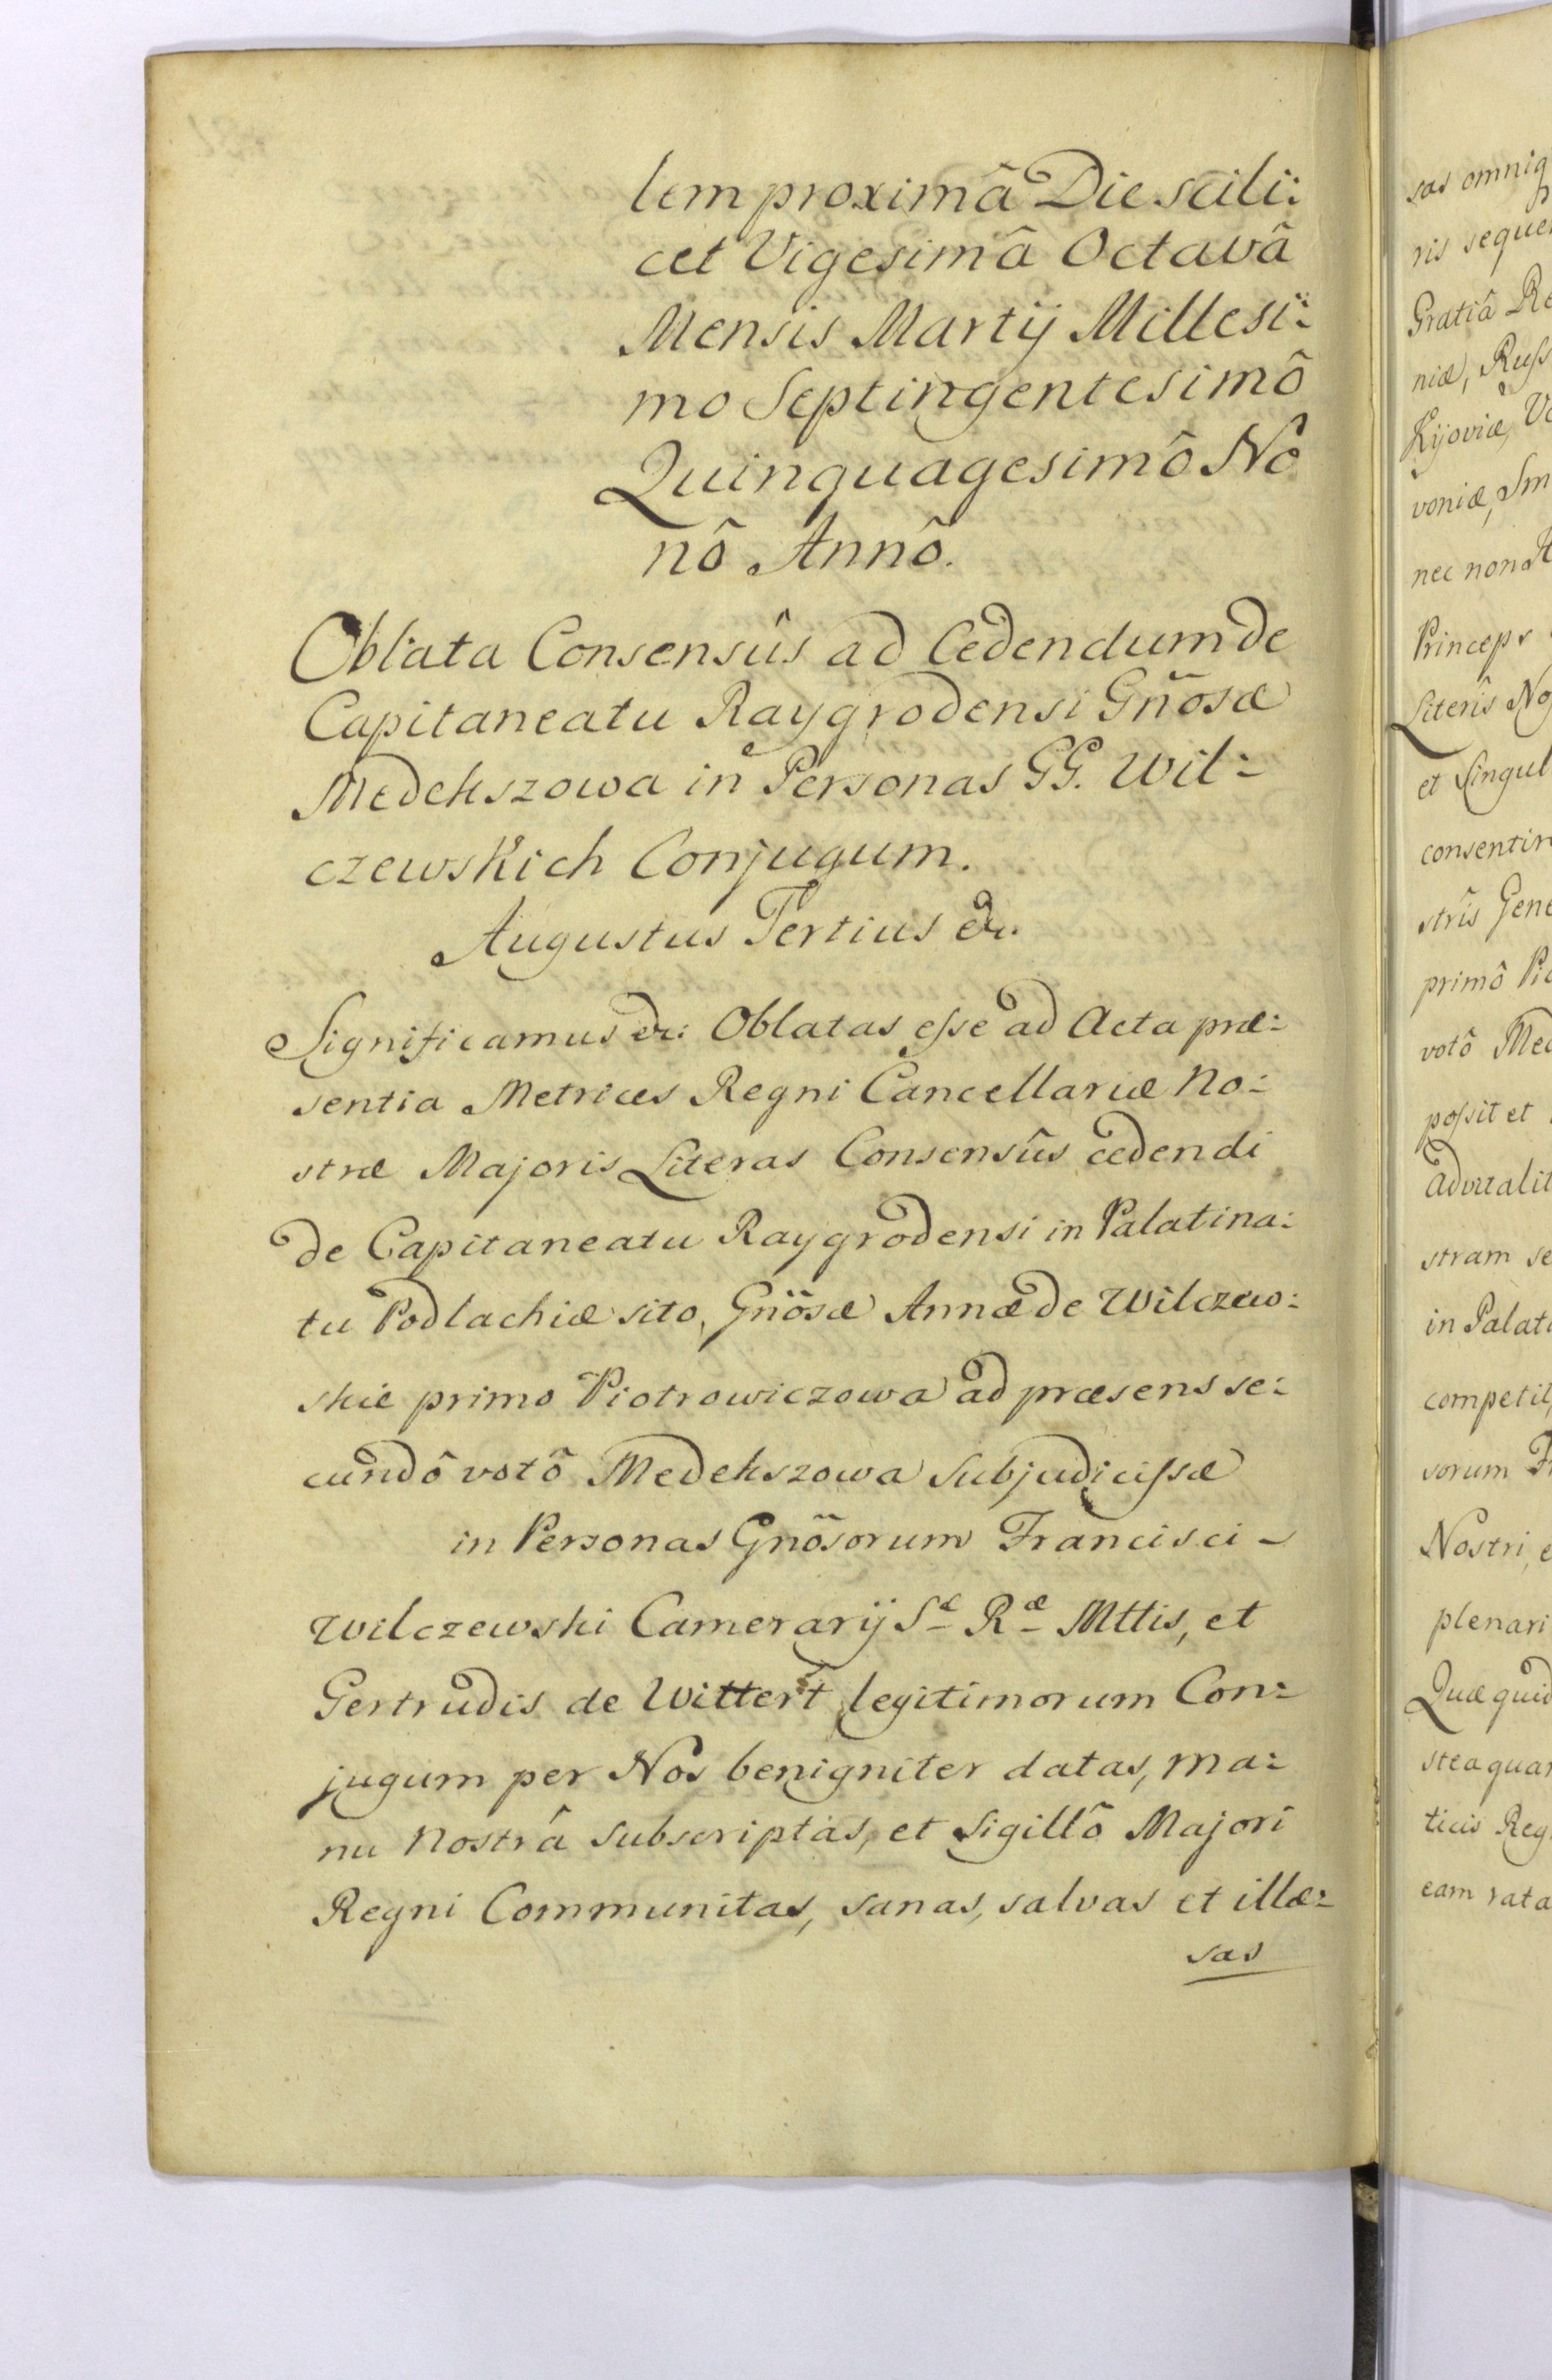 lem proximâ Die scili:
cet Vigesimâ Octavâ
Mensis Martij Millesi:
mo Septingentesimô
Quinquagesimô No
nô Annô.
Oblata Consensûs ad Cedendum de
Capitaneatu Raygrodensi Gñosæ
Medekszowa in Personas GG. Wil:
czewskich Conjugum.
Augustus Tertius &c.
Significamus &c: Oblatas esse ad Acta præ:
sentia Metrices Regni Cancellariæ No:
stræ Majoris Literas Consensûs cedendi
de Capitaneatu Raygrodensi in Palatina:
tu Podlachiæ sito, Gñosæ Annæ de Wilczew:
skie primo Piotrowiczowa ad præsens se:
cundô votô Medekszowa Subjudicissæ
in Personas Gñosorum Francisci -
Wilczewski Camerarij Sæ Ræ Mttis, et
Gertrudis de Wittert legitimorum Con:
jugum per Nos benigniter datas, ma:
nu Nostrâ subscriptas, et Sigillô Majori
Regni Communitas, sanas, salvas et illæ:
sas
sas omniq
ris seque
Gratiâ Re
niæ, Russ
Kijoviæ, Vo
voniæ, Sm
nec non
Princeps
Literis No
et Singul
consentin
stris Gene
primô Pio
votô Med
possit et
advitalit
stram se
in Palati
competit
sorum Fr
Nostri, e
plenari
Quæ quid
stea quam
ticis Reg
eam rata